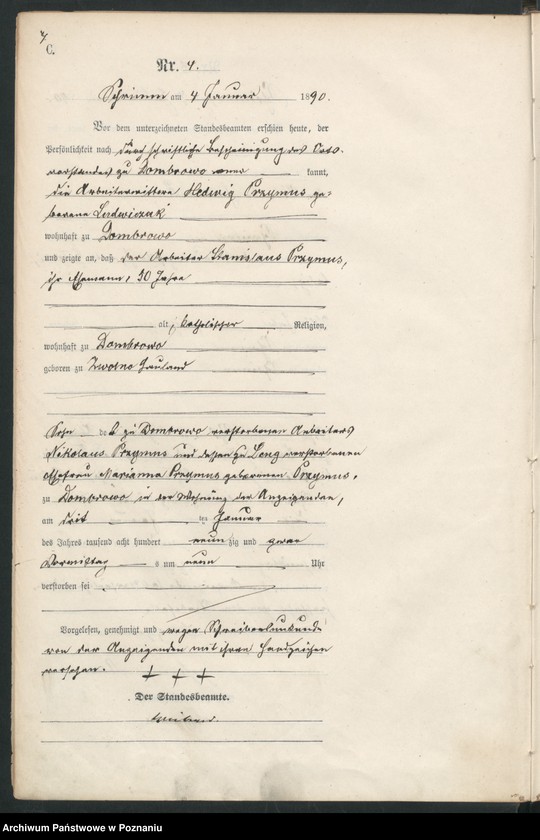 7.
C.
Nr. 4.
Schrimm am 4 Januar 1890.
Vor dem unterzeichneten Standesbeamten erschien heute, der
Persönlichkeit nach durch schriftliche Bescheinigung des Orts-
vorstandes zu Dombrowo kannt,
die Arbeiterwittwe Hedwig Przymus ge-
borene Ludwiczak
wohnhaft zu Dombrowo
und zeigte an, daß der Arbeiter Stanislaus Przymus,
ihr Ehemann, 30 Jahre
alt, katholischer Religion,
wohnhaft zu Dombrowo
geboren zu Hauland
Sohn des zu Dombrowo verstorbenen Arbeiters
Nikolaus Przymus und dessen zu Leng verstorbenen
Ehefrau Marianna Przymus geborenen Przymus,
zu Dombrowo in der Wohnung der Anzeigenden,
am drit ten Januar
des Jahres tausend acht hundert neun zig und zwar
Vormittag s um neun Uhr
verstorben sei.
Vorgelesen, genehmigt und wegen Schreibensunkunde
von der Anzeigenden mit ihrem Handzeichen
versehen.
+ + +
Der Standesbeamte.
Archiwum Państwowe w Poznaniu